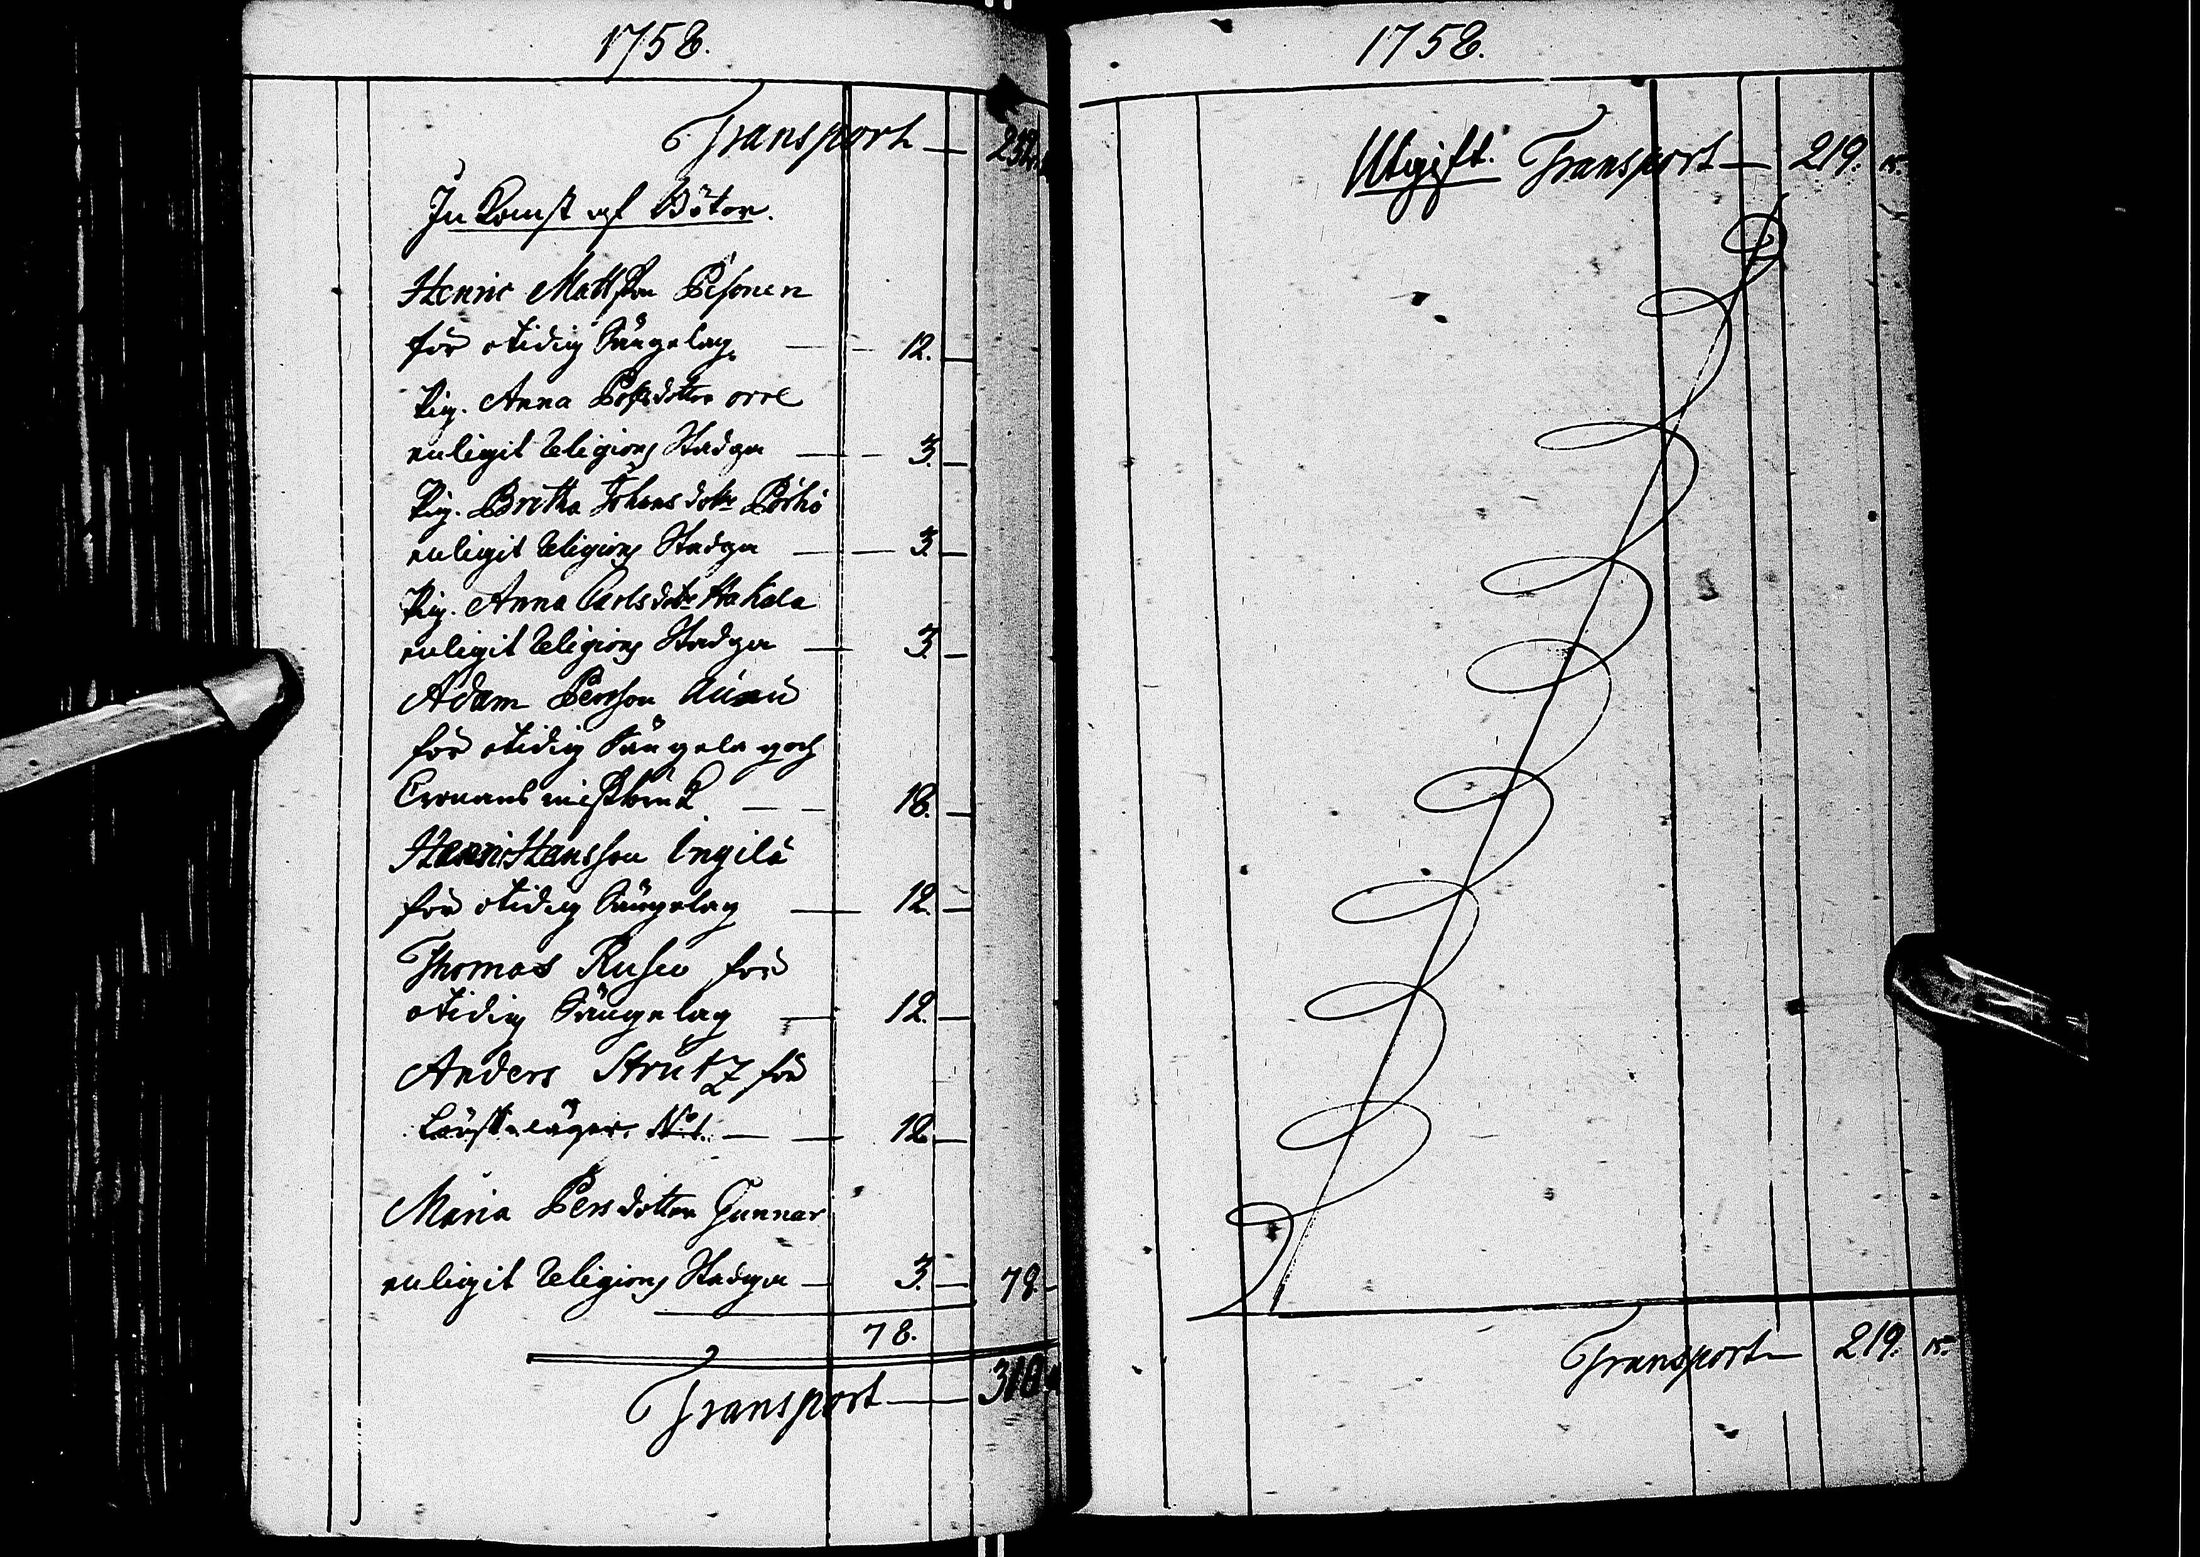 1758.
Transport —
Inkomst af Böter.
Henric Mattsson Pesonen
för otidig Sängelag. — — 12. —
Pig. Anna Persdotter orre
enligit Religions Stadga — — 3. —
Pig. Britha Johansdotr Pörhö
enligit Religions Stadga — — 3. —
Pig. Anna Carlsdotr Hakala
enligit Religions Stadga — 3. —
Adam Persson
för otidig Sängelag och
Cronans — — 18. —
Henric Hansson Ingilä
för otidig Sängelag — 12. —
Thomas Rusu för
otidig Sängelag — 12. —
Anders Strutz för
Löuskeläger — — 12. —
Maria Persdotter Gunnar
enligit Religions Stadga — 3. — 78. —
78.
Transport —
1758.
Utgift. Transport — 219. 15.
Transport — 219. 15.